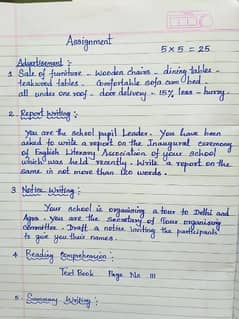 Assignment
5 × 5 = 25
Advertisement :
1 Sale of furniture - wooden chairs - dining tables -
teakwood tables - Comfortable sofa cum bed -
all under one roof - door delivery - 15% less - hurry.
2. Report Writing :
You are the school pupil Leader. You have been
asked to write a report on the Inaugural ceremony
of English Literary Association of your school
which was held recently. Write a report on the
same in not more than 100 words.
3 Notice Writing :
Your school is organising a tour to Delhi and
Agra. You are the secretary of Tour organising
committee. Draft a notice inviting the participants
to give you their names.
4 Reading Comprehension :
Text Book Page No 111
5 Summary Writing :